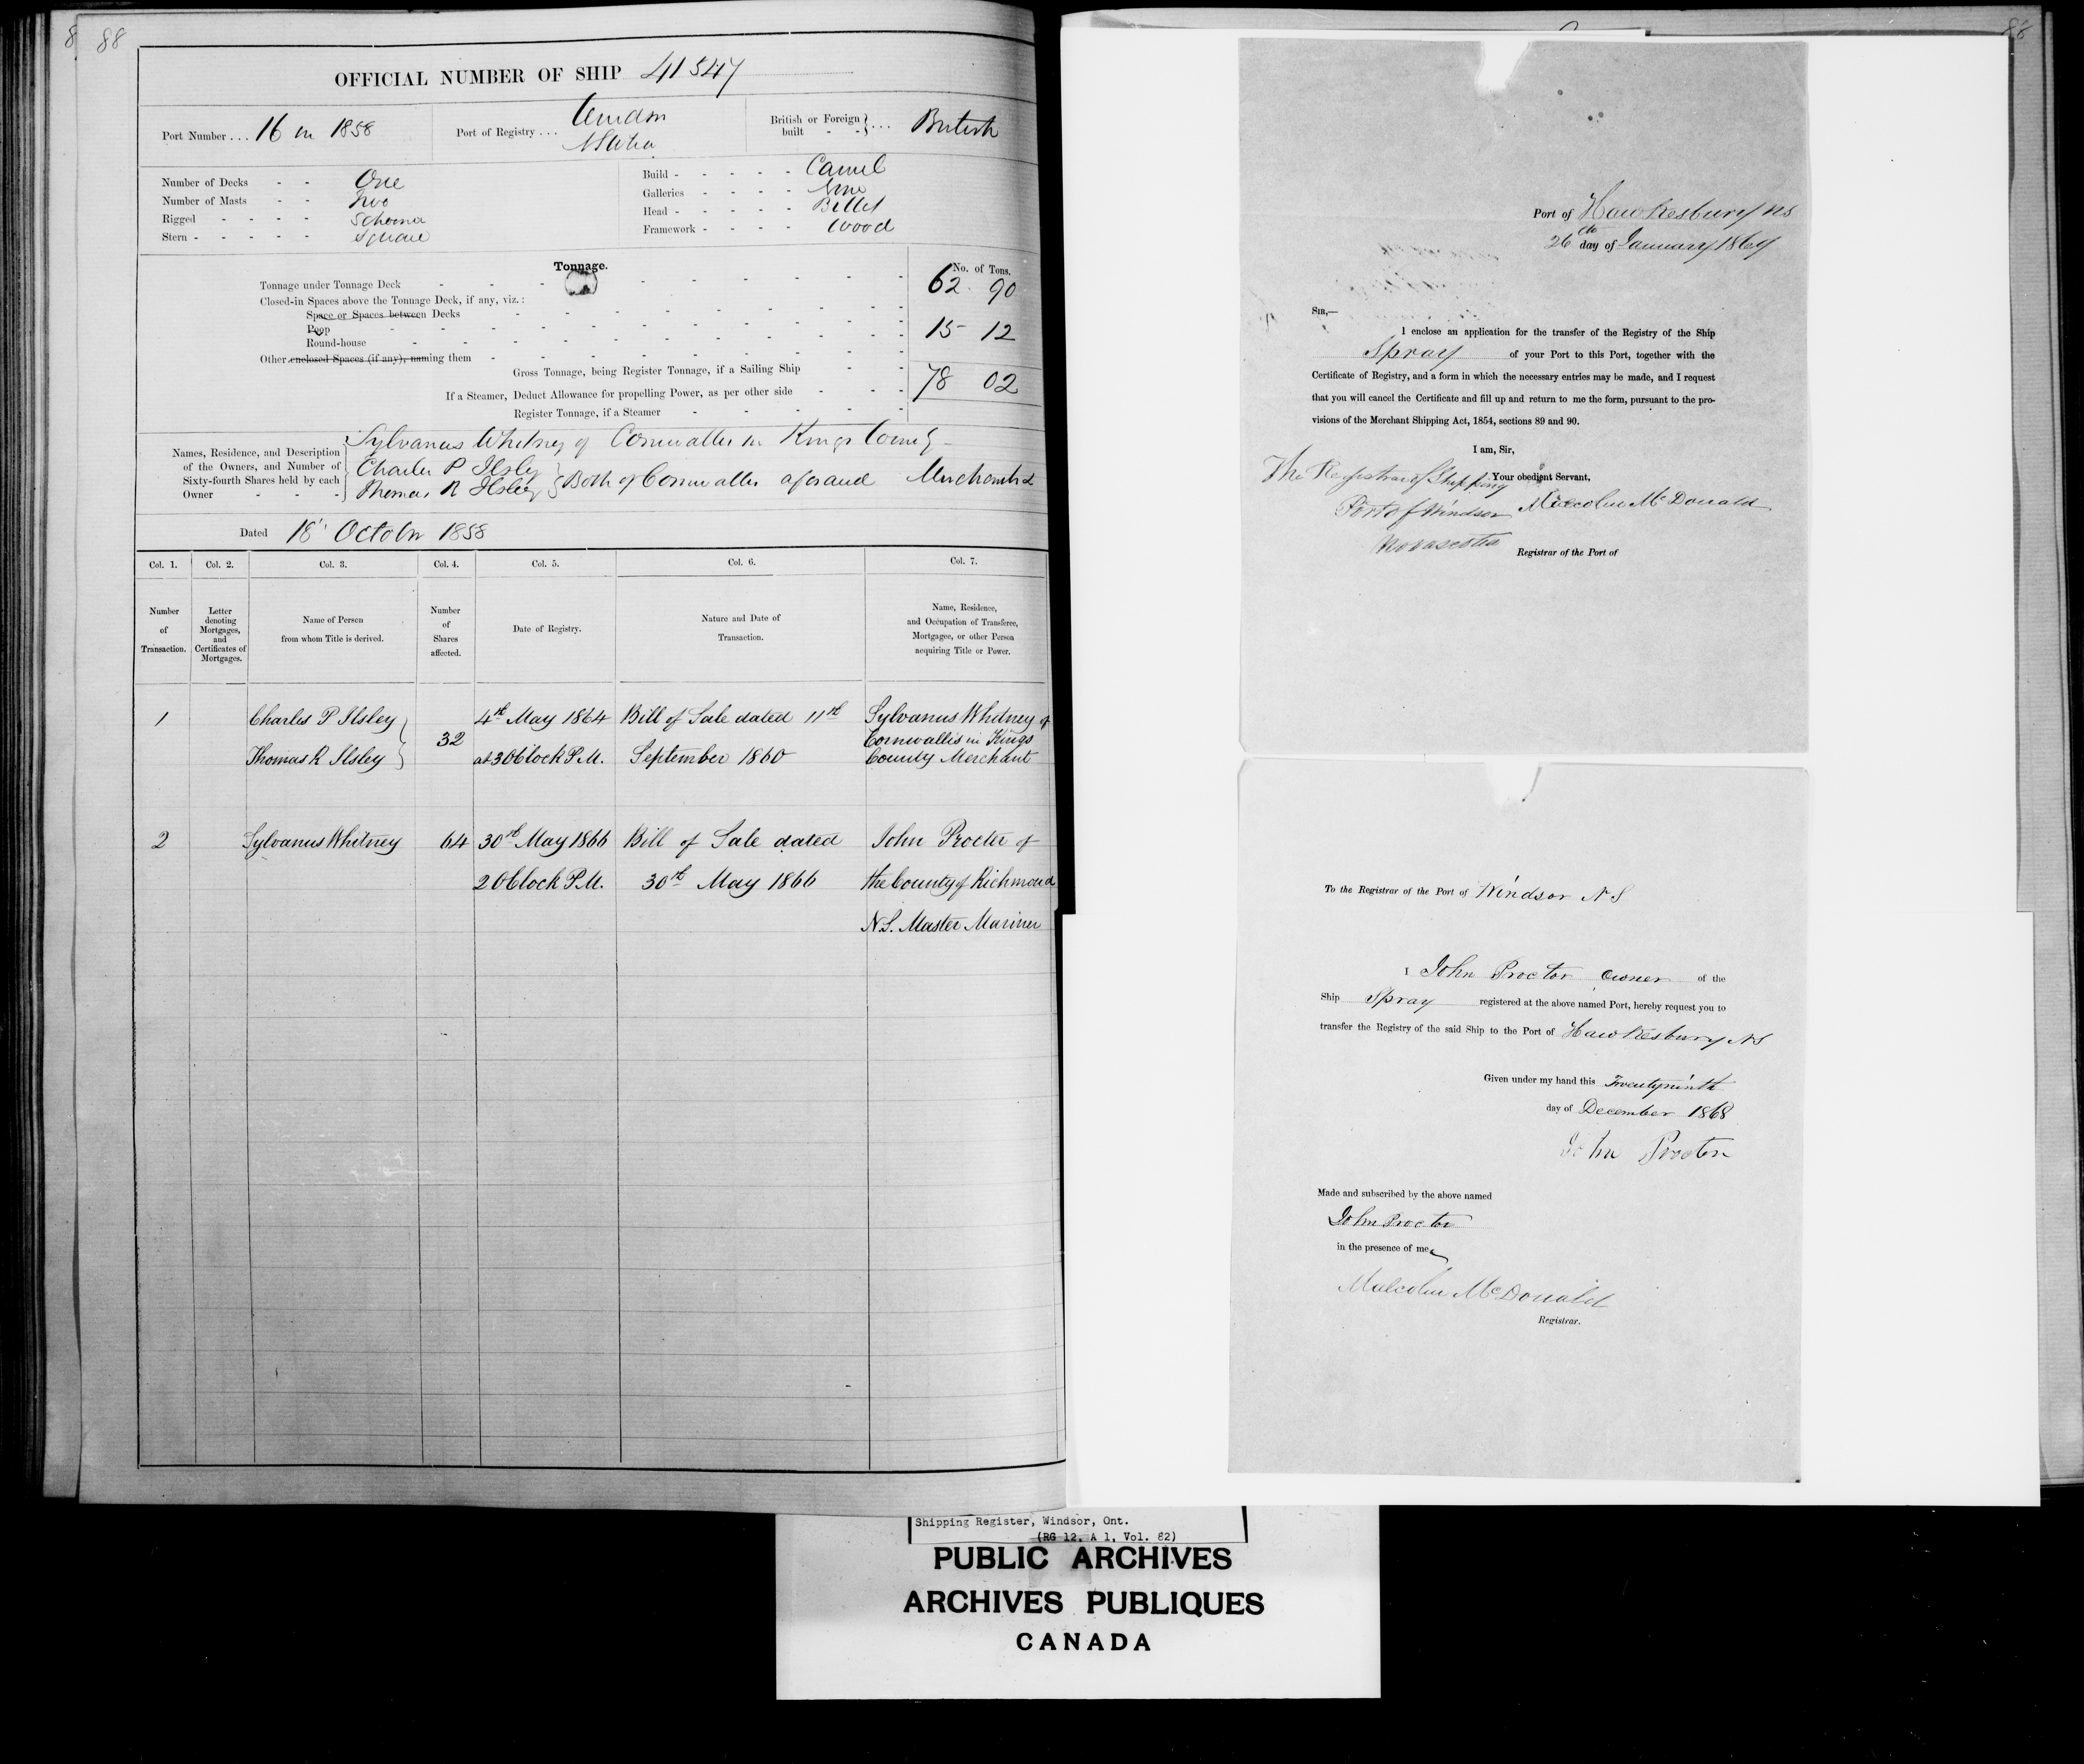 8 88
OFFICIAL NUMBER OF SHIP 41547
Port Number . . . 16 in 1858
Port of Registry . . . Windsor
N Scotia
British or Foreign built - - } . . . British
Number of Decks - - One
Number of Masts - - Two
Rigged - - - - Schooner
Stern - - - - - Square
Build - - - - - - Carvel
Galleries - - - - None
Head - - - - - - Billet
Framework - - - - Wood
Tonnage.
No. of Tons.
Tonnage under Tonnage Deck 62. 90
Closed-in Spaces above the Tonnage Deck, if any, viz.:
Space or Spaces between Decks
Poop 15 12
Round-house
Other enclosed Spaces (if any), naming them
Gross Tonnage, being Register Tonnage, if a Sailing Ship
If a Steamer, Deduct Allowance for propelling Power, as per other side 78 02
Register Tonnage, if a Steamer
Names, Residence, and Description of the Owners, and Number of Sixty-fourth Shares held by each Owner - - -
Sylvanus Whitney of Cornwallis in Kings County
Charles P Ilsley
Thomas R Ilsley } Both of Cornwallis aforsaid Merchants
Dated 18' October 1858
Col. 1. Col. 2. Col. 3. Col. 4. Col. 5. Col. 6. Col. 7.
Number of Transaction.
Letter denoting Mortgages, and Certificates of Mortgages.
Name of Person from whom Title is derived.
Number of Shares affected.
Date of Registry.
Nature and Date of Transaction.
Name, Residence, and Occupation of Transferee, Mortgagee, or other Person acquiring Title or Power.
1 Charles P Ilsley 4th May 1864 Bill of Sale dated 11th Sylvanus Whitney of
32 Cornwallis in Kings
Thomas R Ilsley at 3 OClock P.M. September 1860 County Merchant
2 Sylvanus Whitney 64 30th May 1866 Bill of Sale dated John Procter of
2 OClock P.M. 30th May 1866 the County of Richmond
N.S. Master Mariner
88
Port of Hawkesbury NS
26th day of January 1869
SIR,—
I enclose an application for the transfer of the Registry of the Ship
Spray of your Port to this Port, together with the
Certificate of Registry, and a form in which the necessary entries may be made, and I request
that you will cancel the Certificate and fill up and return to me the form, pursuant to the pro-
visions of the Merchant Shipping Act, 1854, sections 89 and 90.
I am, Sir,
Your obedient Servant,
The Registrar of Shipping
Port of Windsor Malcolm McDonald
Novascotia
Registrar of the Port of
To the Registrar of the Port of Windsor N S
I John Proctor Owner of the
Ship Spray registered at the above named Port, hereby request you to
transfer the Registry of the said Ship to the Port of Hawkesbury NS
Given under my hand this Twentyninth
day of December 1868
John Procton
Made and subscribed by the above named
John Proctor
in the presence of me
Malcolm McDonald
Registrar.
Shipping Register, Windsor, Ont.
(RG 12, A 1, Vol. 82)
PUBLIC ARCHIVES
ARCHIVES PUBLIQUES
CANADA